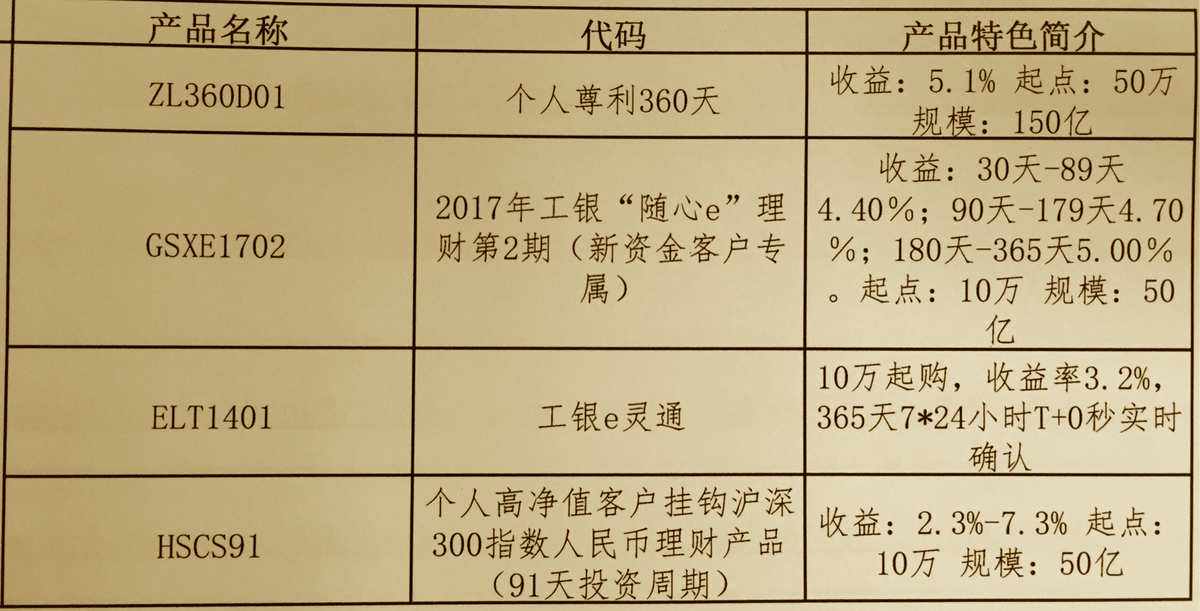 产品名称 代码 产品特色简介
ZL360D01 个人尊利360天 收益：5.1% 起点：50万
规模：150亿
GSXE1702
2017年工银“随心e”理
财第2期（新资金客户专
属）
收益：30天-89天
4.40％；90天-179天4.70
％；180天-365天5.00％
。起点：10万 规模：50
亿
ELT1401 工银e灵通
10万起购，收益率3.2%，
365天7*24小时T+0秒实时
确认
HSCS91
个人高净值客户挂钩沪深
300指数人民币理财产品
（91天投资周期）
收益：2.3%-7.3% 起点：
10万 规模：50亿